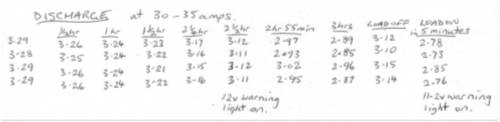 DISCHARGE at 30-35amps.
½hr 1hr 1½hr 2¼hr 2¾hr 2hr 55min 3hrs LOAD OFF LOAD ON
in 5 minutes
3.29 3.26 3.24 3.23 3.17 3.12 2.97 2.89 3.12 2.78
3.28 3.25 3.24 3.22 3.16 3.11 2.93 2.85 3.10 2.73
3.29 3.26 3.24 3.21 3.15 3.12 3.02 2.96 3.15 2.85
3.29 3.26 3.24 3.22 3.16 3.11 2.95 2.87 3.14 2.76
12v warning 11.2v warning
light on. light on.